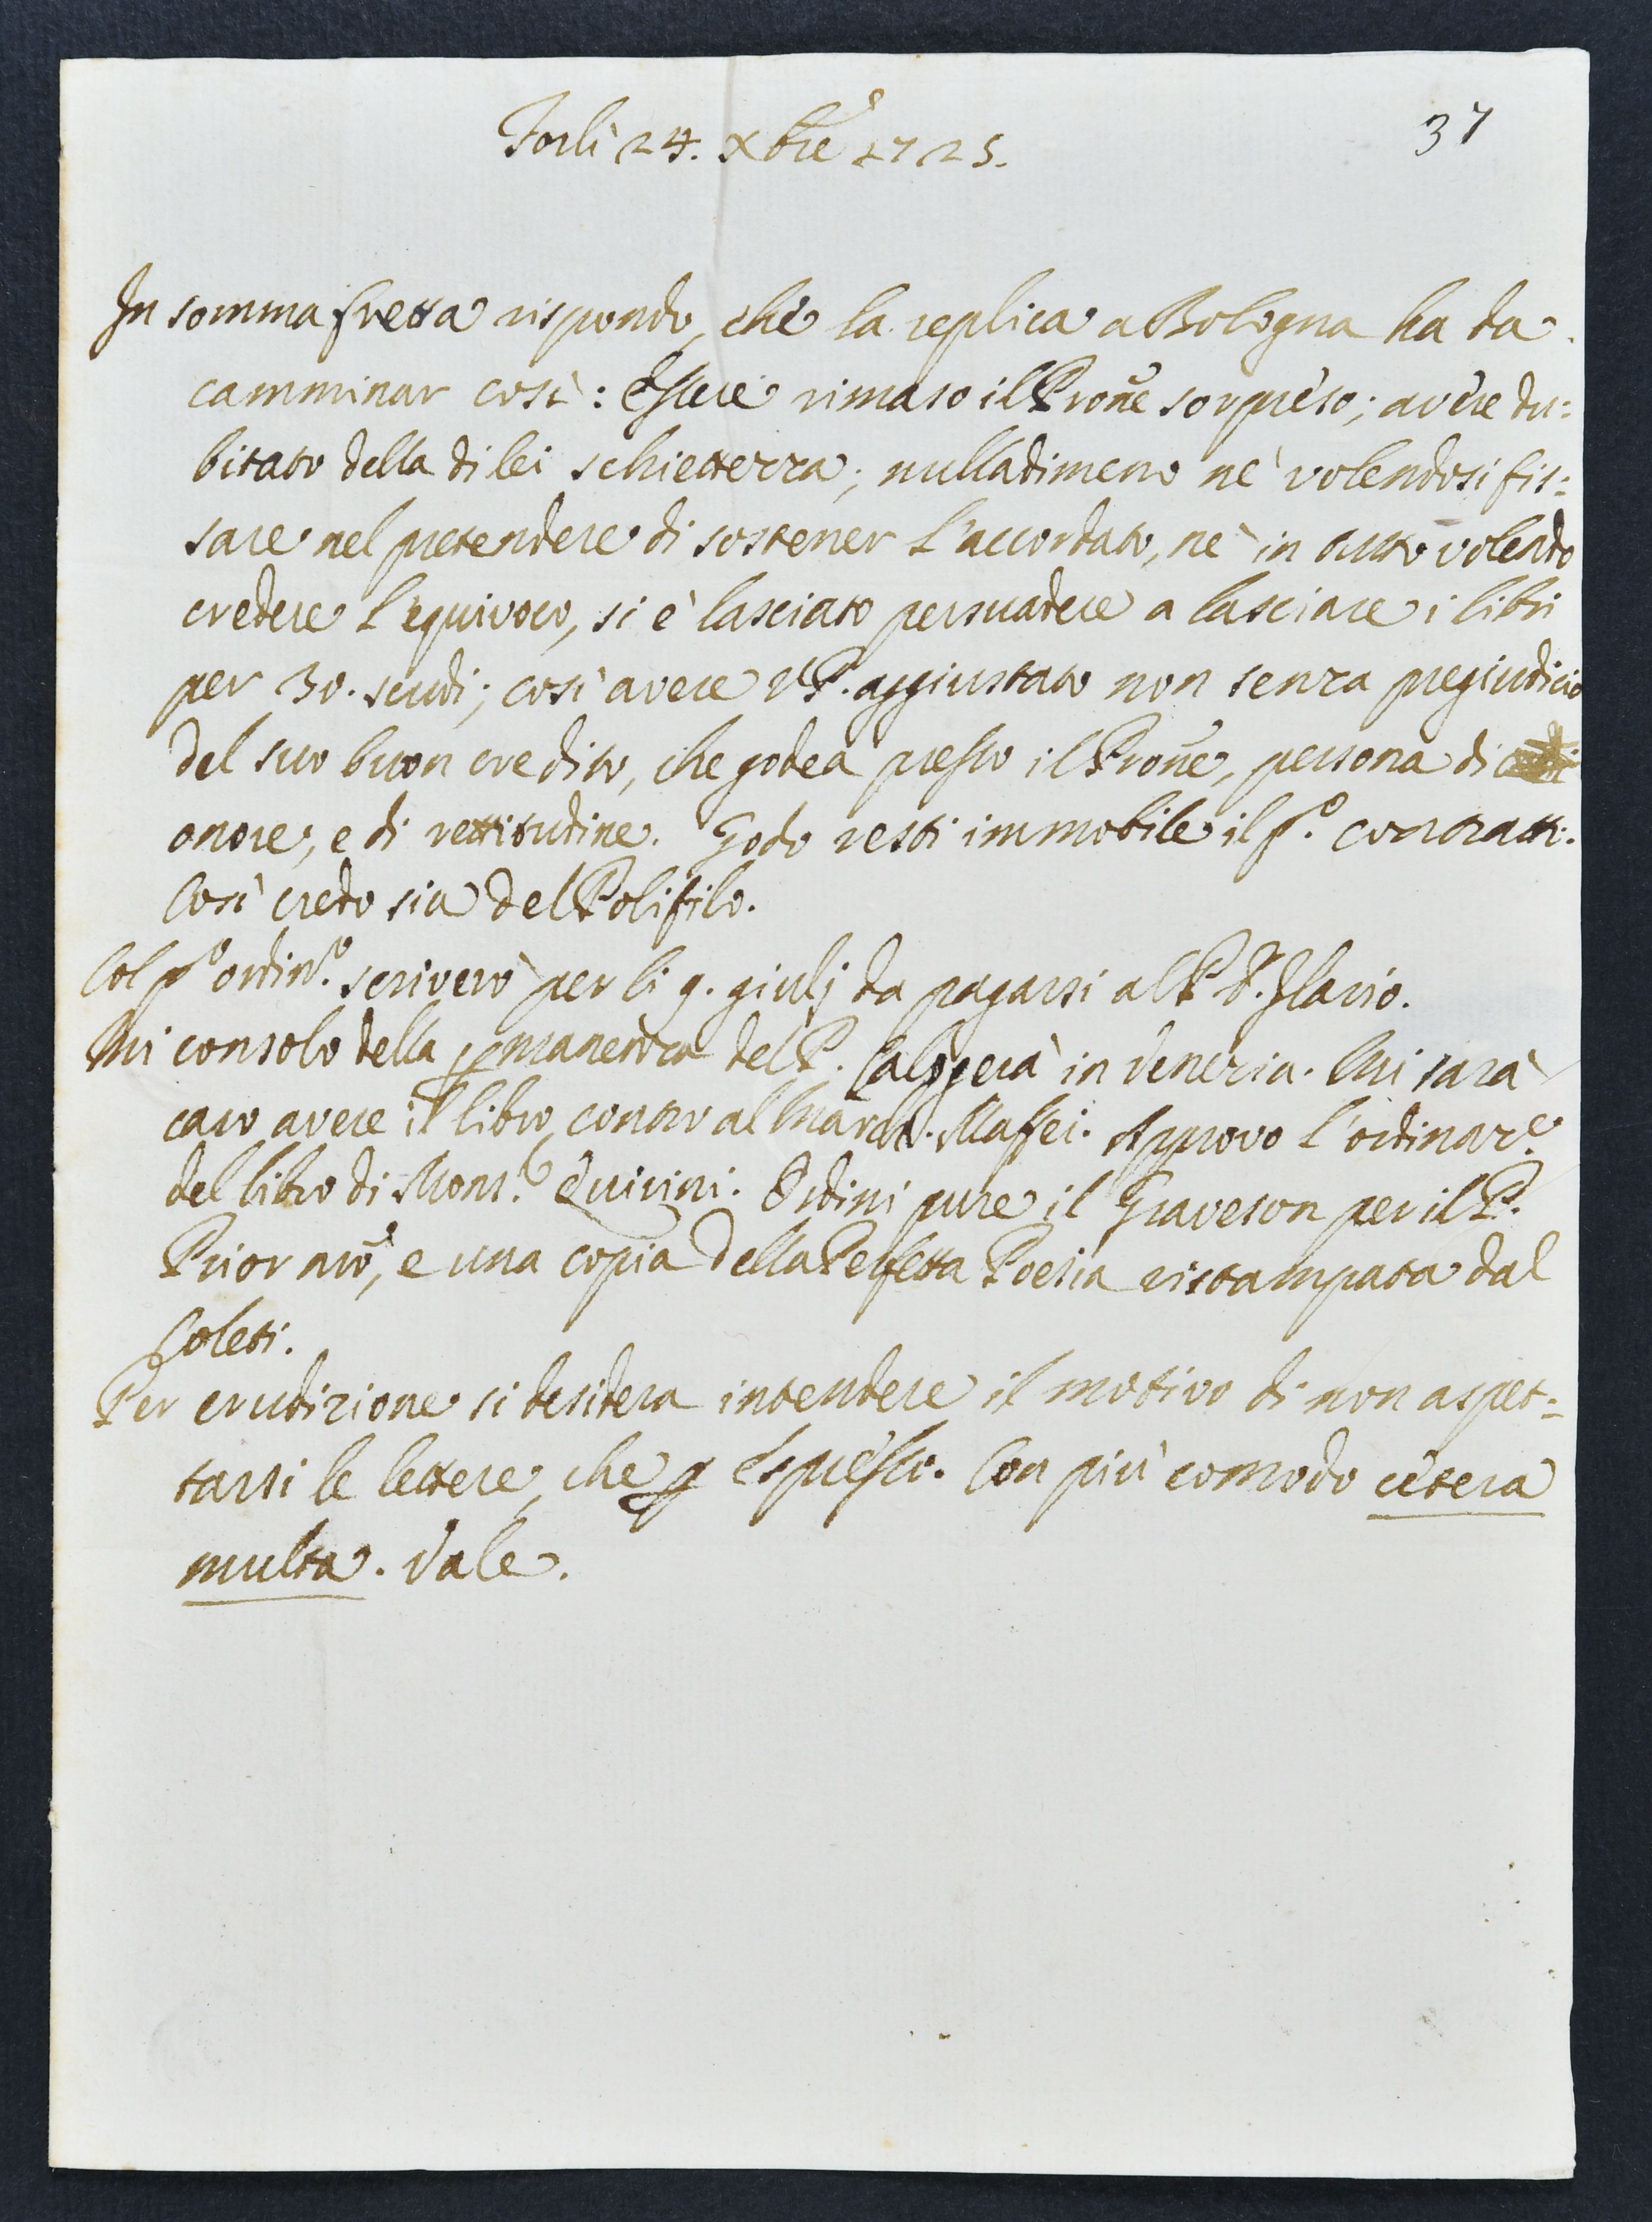 37
Forlì 24. Xbre 1725.
In somma fretta rispondo, che la replica a Bologna ha da
camminar così: Essere rimaso il Prone sorpreso; avere du:
bitato della di lei schiettezza; nulladimeno nè volendosi fis:
sare nel pretendere di sostener l'accordato, nè in tutto volendo
credere l'equivoco, si è lasciato persuadere a lasciare i libri
per 30. scudi; così avere V.P. aggiustato non senza pregiudicio
del suo buon credito, che godea presso il Prone, persona di
onore, e di rettitudine. Godo resti immobile il po. contratto.
Così credo sia del Polifilo.
Col po ordino. scriverò per li 9. giulj da pagarsi al P. D. Ilario.
Mi consolo della permanenza del P. Calogerà in Venezia. Mi sarà
caro avere il libro contro al March. Maffei. Approvo l'ordinare
del libro di Monsr. Quirini. Ordini pure il Graveson per il P.
Prior nro, e una copia della Perfetta Poesia ristampata dal
Coleti.
Per erudizione si desidera intendere il motivo di non aspet:
tarsi le lettere, che per espresso. Con più comodo cetera
multa. Vale.